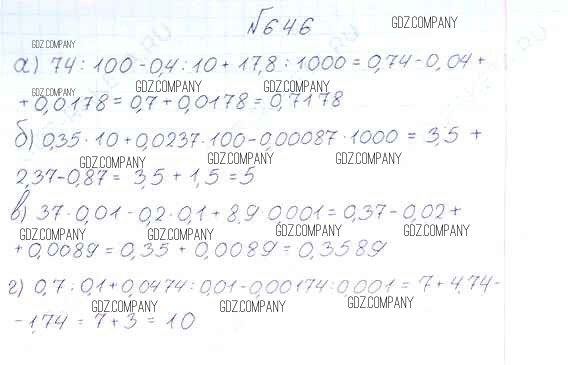 №646
GDZ.COMPANY
GDZ.COMPANY GDZ.COMPANY
а) 74 : 100 - 0,4 : 10 + 17,8 : 1000 = 0,74 - 0,04 +
GDZ.COMPANY GDZ.COMPANY GDZ.COMPANY
+ 0,0178 = 0,7 + 0,0178 = 0,7178
б) 0,35 · 10 + 0,0237 · 100 - 0,00087 · 1000 = 3,5 +
GDZ.COMPANY GDZ.COMPANY GDZ.COMPANY
2,37 - 0,87 = 3,5 + 1,5 = 5
в) 37 · 0,01 - 0,2 · 0,1 + 8,9 · 0,001 = 0,37 - 0,02 +
GDZ.COMPANY GDZ.COMPANY GDZ.COMPANY GDZ.COMPANY
+ 0,0089 = 0,35 + 0,0089 = 0,3589
г) 0,7 : 0,1 + 0,0474 : 0,01 - 0,00174 : 0,001 = 7 + 4,74 -
GDZ.COMPANY GDZ.COMPANY GDZ.COMPANY
- 1,74 = 7 + 3 = 10